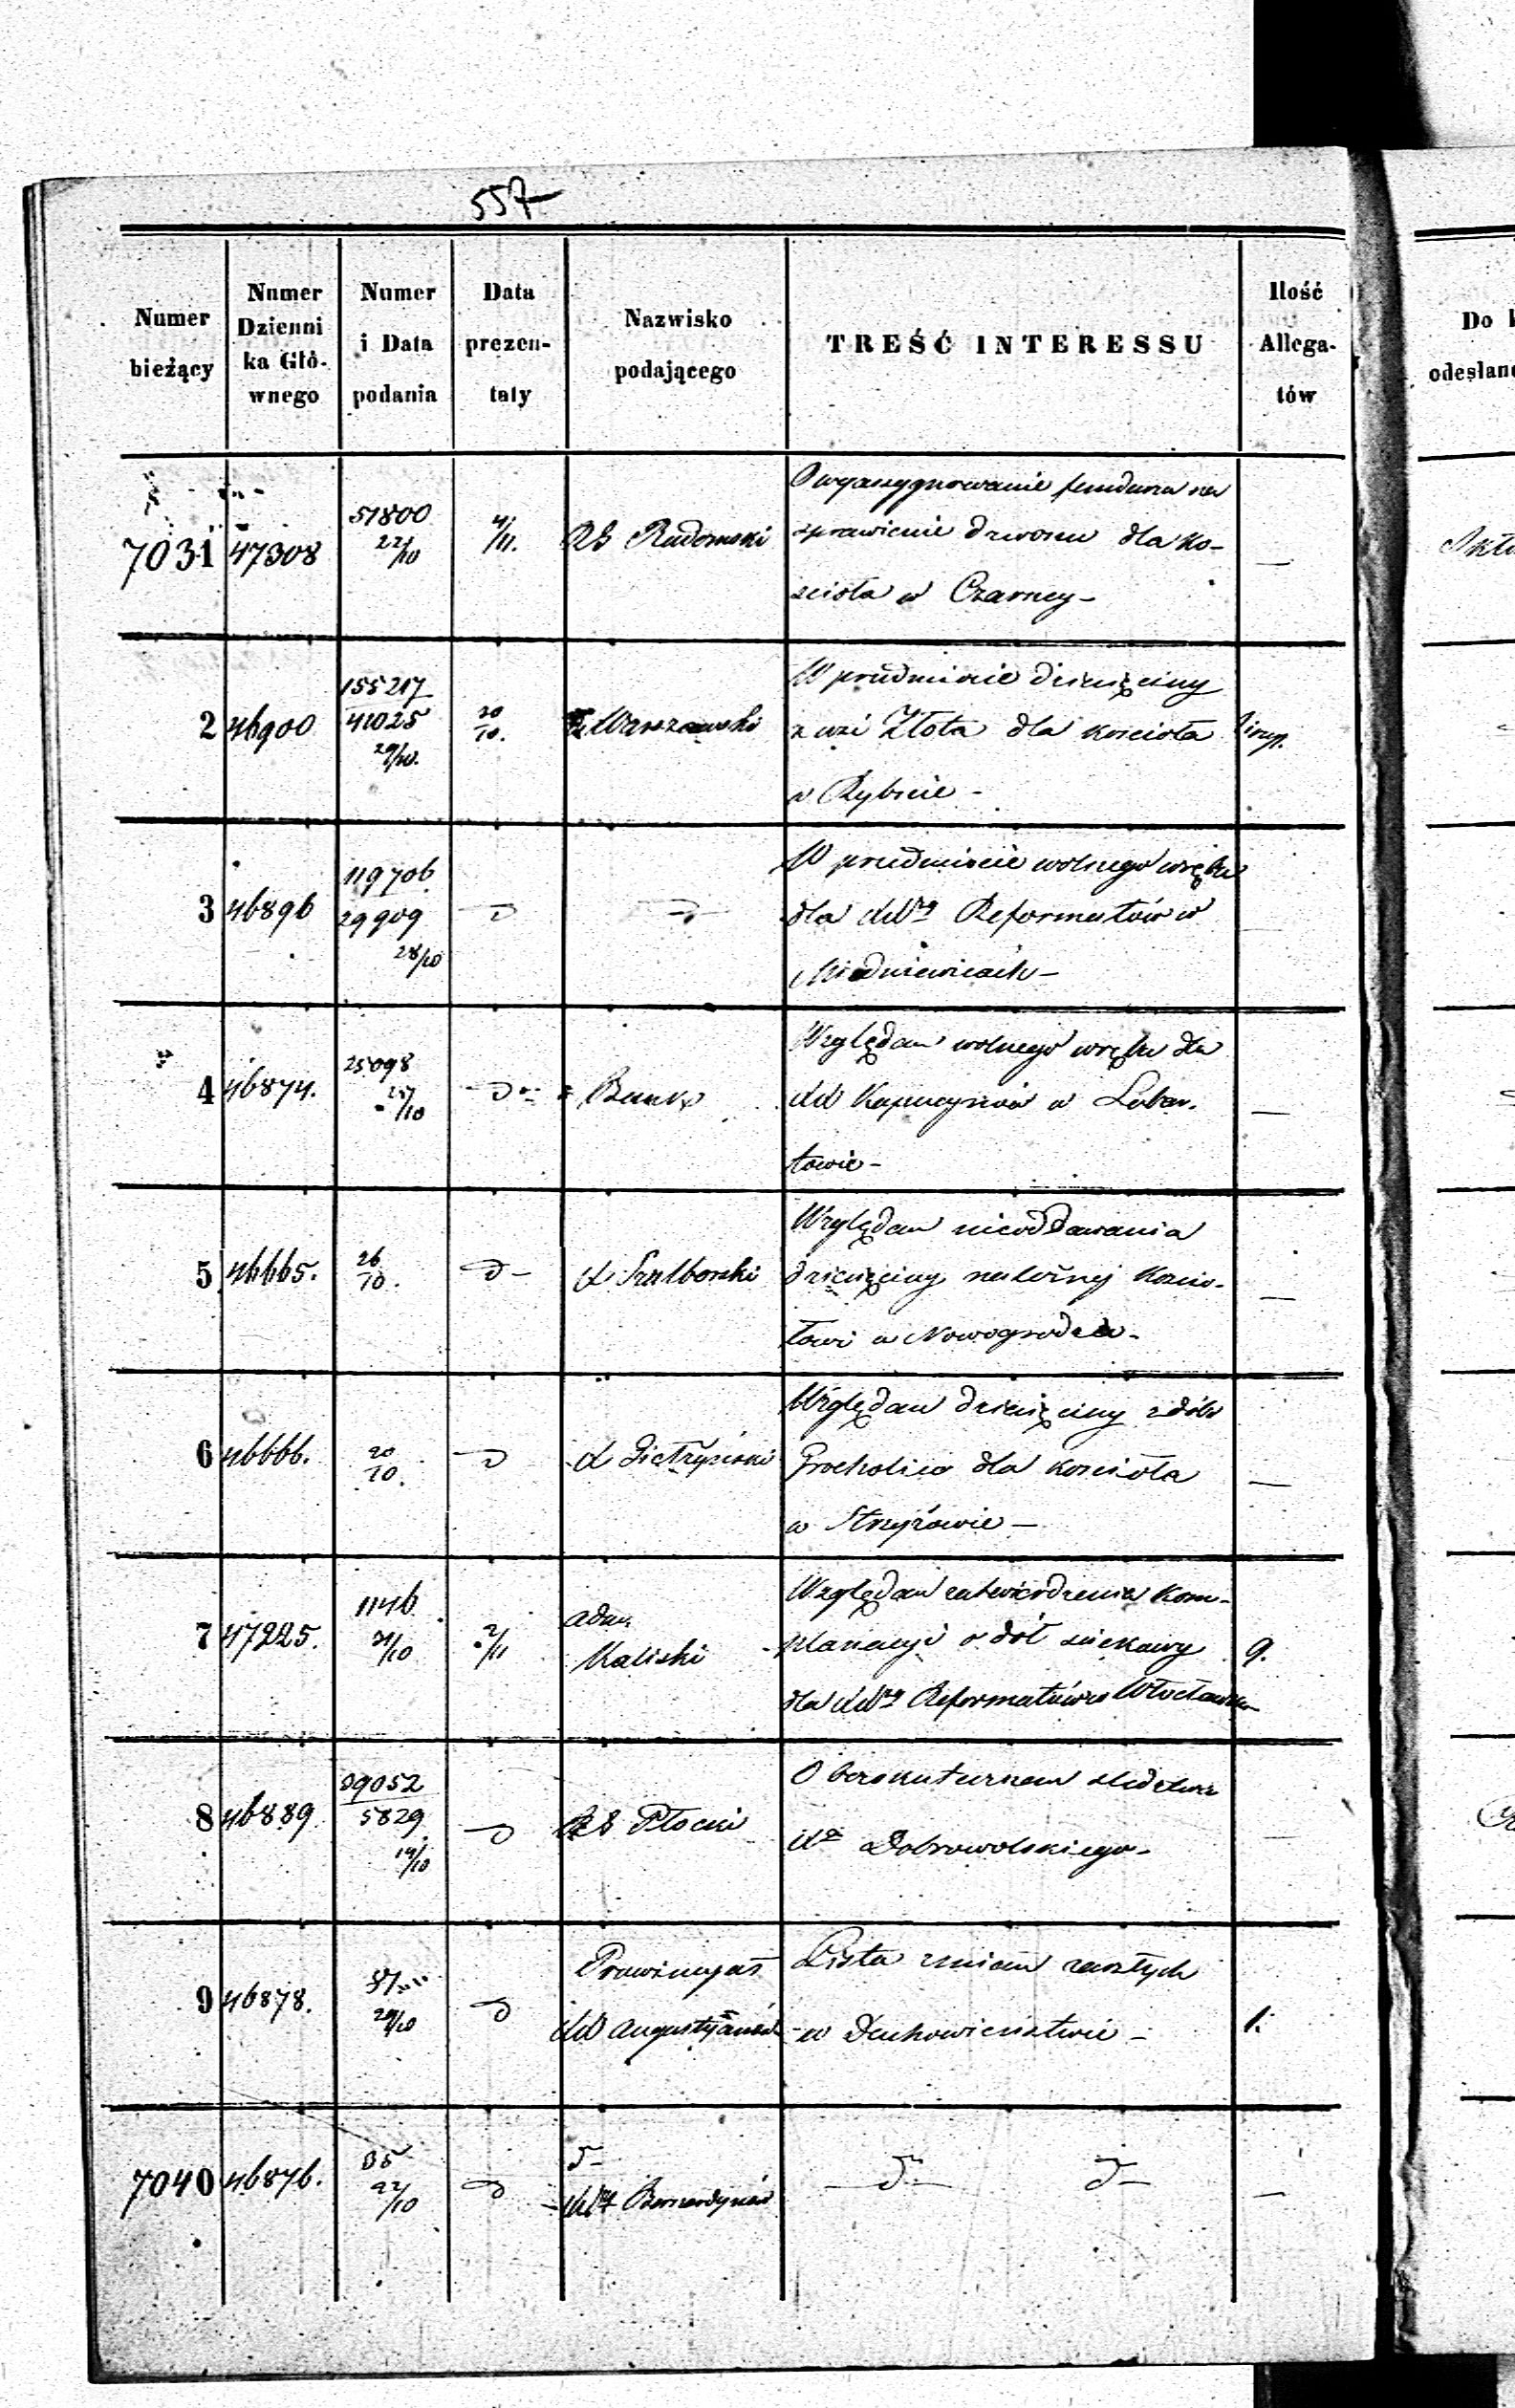 557
Numer bieżący
Numer Dzienni ka Głó- wnego
Numer i Data podania
Data prezen- taty
Nazwisko podającego
TREŚĆ INTERESSU
Ilość Allega- tów
Do
odesłan
7031 47308 51800 22/10 4/11. RG Radomski
O wyassygnowanie funduszu na
sprawienie dzwonu dla ko-
scioła w Czarncy -
2 46900 155217 41025 29/10. 30/10. Warszawski
W przedmiocie dziesięciny
z wsi Złota dla kościoła
w Rybnie -
3 46896 119706 29909 28/10
W przedmiocie wolnego wrębu
dla Reformatów w
Miedniewicach -
4 46874. 25098 27/10 Bank
Względem wolnego wrębu dla
Kapucynów w Lubar-
towie -
5 46665. 26/10. X Szulborski
Względem nieoddawania
dziesięciny należnej Kościo-
łowi w Nowogrodzie -
6 46666. 20/10. X
Względem dziesięciny z dóbr
dla kościoła
w Strzyżowie -
7 47225. 1146 31/10 2/11 Adm. Kaliski
Względem zatwierdzenia Kom-
planacyi o dół ściekowy 9.
dla Reformatów w Włocławku
8 46889 39052 5829 19/10 RG Płocki
O bezskutecznem śledztwie
Xa Dobrowolskiego -
9 46878. 29/10 Prowincyał
Augustyanów
Lista zmian zaszłych
w Duchowieństwie - 1.
7040 46876. 35 22/10
Bernardynów